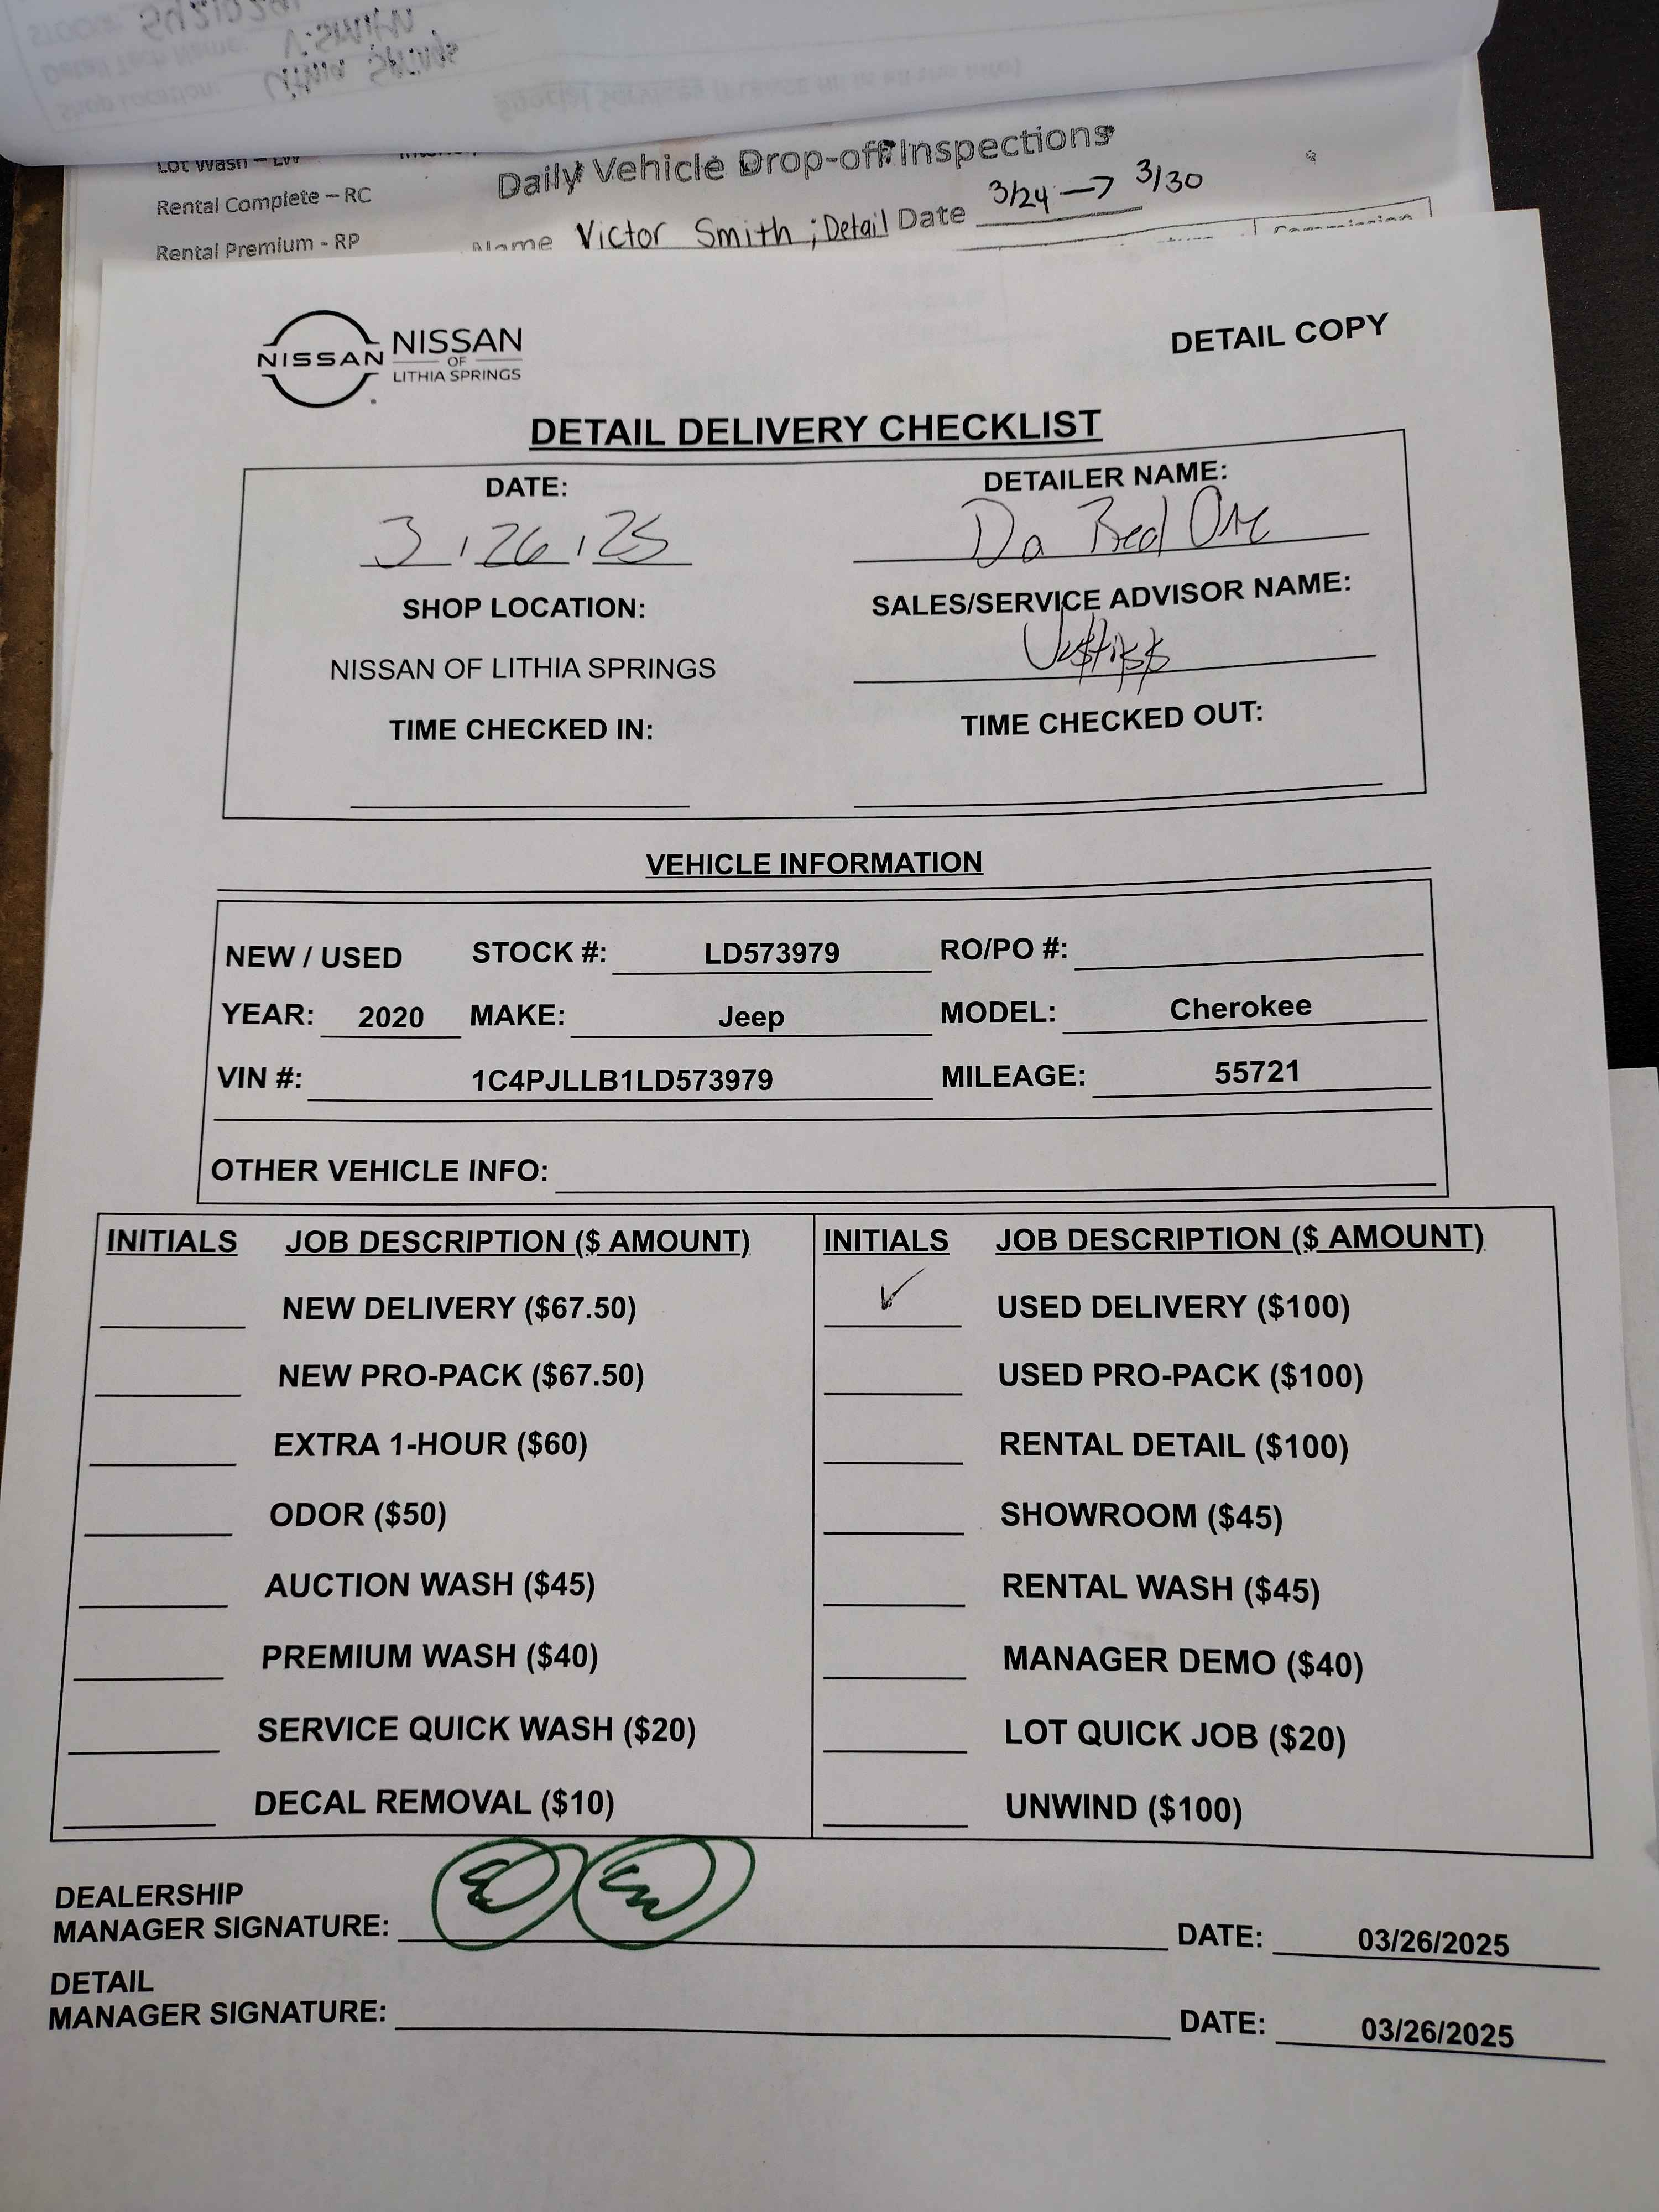 Lot Wash – LW
Rental Complete – RC
Rental Premium - RP
Daily Vehicle Drop-off Inspections
Name Victor Smith ; Detail Date 3/24 → 3/30
NISSAN
NISSAN
OF
LITHIA SPRINGS
DETAIL COPY
DETAIL DELIVERY CHECKLIST
DATE:
3 , 26 , 25
DETAILER NAME:
Da Red One
SHOP LOCATION:
NISSAN OF LITHIA SPRINGS
SALES/SERVICE ADVISOR NAME:
TIME CHECKED IN:
TIME CHECKED OUT:
VEHICLE INFORMATION
NEW / USED STOCK #: LD573979 RO/PO #:
YEAR: 2020 MAKE: Jeep MODEL: Cherokee
VIN #: 1C4PJLLB1LD573979 MILEAGE: 55721
OTHER VEHICLE INFO:
INITIALS JOB DESCRIPTION ($ AMOUNT)
NEW DELIVERY ($67.50)
NEW PRO-PACK ($67.50)
EXTRA 1-HOUR ($60)
ODOR ($50)
AUCTION WASH ($45)
PREMIUM WASH ($40)
SERVICE QUICK WASH ($20)
DECAL REMOVAL ($10)
INITIALS JOB DESCRIPTION ($ AMOUNT)
✓ USED DELIVERY ($100)
USED PRO-PACK ($100)
RENTAL DETAIL ($100)
SHOWROOM ($45)
RENTAL WASH ($45)
MANAGER DEMO ($40)
LOT QUICK JOB ($20)
UNWIND ($100)
DEALERSHIP
MANAGER SIGNATURE: DATE: 03/26/2025
DETAIL
MANAGER SIGNATURE: DATE: 03/26/2025